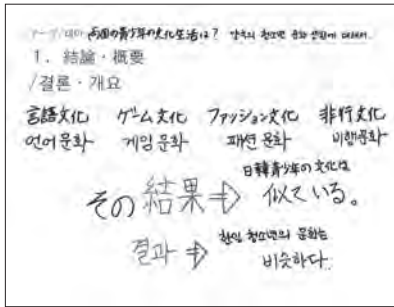 テーマ/테마 両国の青少年の文化生活は? 양국의 청소년 문화 생활에 대해서.
1. 結論・概要
/결론・개요
言語文化 ゲーム文化 ファッション文化 非行文化
언어문화 게임문화 패션문화 비행문화
日韓青少年の文化は
その結果⇒似ている。
한일 청소년의 문화는
결과⇒비슷하다.